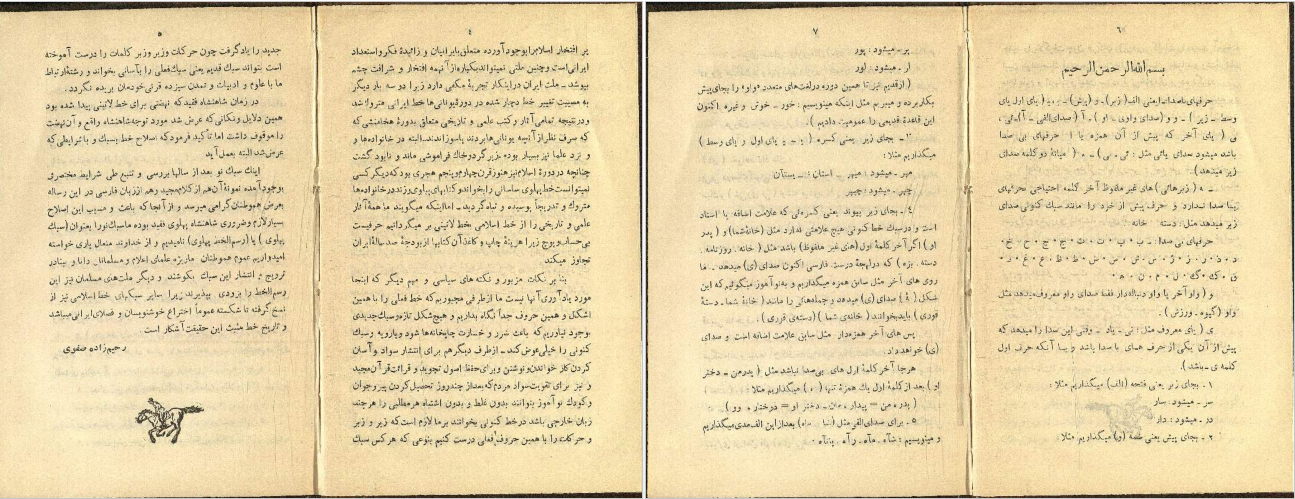 ٤
پر افتخار اسلام را بوجود آورده متعلق بایرانیان و زائیدهٔ فکر و استعداد
ایرانی است و چنین ملتی نمیتواند یکباره از آنهمه افتخار و شرافت چشم
بپوشد ـ ملت ایران در اینکار تجربهٔ مکفی دارد زیرا دو سه بار دیگر
به مصیبت تغییر خط دچار شده در دورهٔ یونانی‌ها خط ایرانی متروک شد
و در نتیجه تمامی آثار و کتب علمی و تاریخی متعلق بدورهٔ هخامنشی که
که صرف نظر از آنچه یونانی‌ها بردند یا سوزاندند البته در خانواده‌ها و
نزد علما نیز بسیار بوده زیر گرد و خاک فراموشی ماند و نابود گشت
چنانچه در دورهٔ اسلام نیز هنوز قرن چهارم و پنجم هجری بود که دیگر کسی
نمیتوانست خط پهلوی ساسانی را بخواند و کتابهای پهلوی نزد در خانواده‌ها
متروک و تدریجاً پوسیده و تباه گردید ـ اما اینکه میگویند ما همهٔ آثار
علمی و تاریخی را از خط اسلامی بخط لاتینی بر میگردانیم حرفیست
بی‌حساب و پوچ زیرا هزینهٔ چاپ و کاغذ آن کتابها از بودجهٔ صد سالهٔ ایران
تجاوز میکند
بنا بر نکات مزبور و نکته‌های سیاسی و مهم دیگر که اینجا
مورد یادآوری آنها نیست ما از طرفی مجبوریم که خط فعلی را با همین
اشکل و همین حروف جدا نگاه بداریم و هیچ شکل تازه و سبک جدیدی
بوجود نیاوریم که باعث ضرر و خسارت چاپخانه‌ها شود و یا رویه و سبک
کنونی را خیلی عوض کند ـ از طرف دیگر هم برای انتشار سواد و آسان
کردن کار خواندن و نوشتن و برای حفظ اصول تجوید و قرائت قرآن مجید
و نیز برای تقویت سواد مردم که بعد از چند روز تحصیل کردن پیر و جوان
و کودک نوآموز بتوانند بدون غلط و بدون اشتباه هر مطلبی را هر چند
زبان خارجی باشد در خط کنونی بخوانند بر ما لازم است که زیر و زبر
و حرکات را با همین حروف فعلی درست کنیم بنوعی که هر کس سبک
٥
جدید را یاد گرفت چون حرکات و زیر و زبر کلمات را درست آموخته
است بتواند سبک قدیم یعنی سبک فعلی را بآسانی بخواند و رشتهٔ ارتباط
ما با علوم و ادبیات و تمدن سیزده قرنی خودمان بریده نگردد.
در زمان شاهنشاه فقید که نهضتی برای خط لاتینی پیدا شده بود
همین دلایل و نکاتی که عرض شد مورد توجه شاهنشاه واقع و آن نهضت
را موقوف داشت اما تأکید فرمود که اصلاح خط بسبک و با شرایطی که
عرض شد البته بعمل آید
اینک سبک نو بعد از سالها بررسی و تتبع طی شرایط مختصری
بوجود آمده نمونهٔ آن هم از کلام مجید و هم از زبان فارسی در این رساله
بعرض هموطنان گرامی میرسد و از آنجا که باعث و مسبب این اصلاح
بسیار لازم و ضروری شاهنشاه پهلوی فقید بوده ما سبک نو را بعنوان (سبک
پهلوی) یا (رسم‌الخط پهلوی) نامیدیم و از خداوند متعال یاری خواسته
امیدواریم عموم هموطنان ما بویژه علمای اعلام و مسلمانان دانا و بینا در
ترویج و انتشار این سبک بکوشند و دیگر ملت‌های مسلمان نیز این
رسم‌الخط را بزودی بپذیرند زیرا سایر سبک‌های خط اسلامی نیز از
نسخ گرفته تا شکسته عموماً اختراع خوشنویسان و فضلای ایرانی میباشد
و تاریخ خط مثبت این حقیقت آشکار است.
رحیم‌زاده صفوی
٦
بسم‌الله‌الرحمن‌الرحیم
حرفهای باصدا: یعنی الف (زبر) ـ و (پیش) ـ یای اول یای
وسط ـ زیر) ـ و و (صدای واوی ـ او) ـ آ (صدای الفی ـ آ) می،
ی (یای آخر که پیش از آن همزه یا ا حرفهای بی صدا
باشد میشود صدای یائی مثل: ئی ـ نی) ـ میانهٔ دو کلمه صدای
زیر میدهد)
ـ ه (زیرهائی) های غیر ملفوظ آخر کلمه احتیاجی بحرفهای
پیدا صدا ندارد و حرف پیش از خود را مانند سبک کنونی صدای
زیر میدهد مثل: دسته خانه
حرفهای بی صدا: ب ، پ ، ت ، ث ، ج ، چ ، ح ، خ ،
د ، ذ ، ر ، ز ، ژ ، س ، ش ، ص ، ض ، ط ، ظ ، ع ، غ ، ف
ق ، ک ، گ ، ل ، م ، ن ، ه ،
و (واو آخر یا واو دنباله‌دار فقط صدای واو معروف میدهد مثل
واو (گیوه ـ ورزش).
ی (یای معروف مثل: نی ـ یاد ـ وقتی این صدا را میدهد که
پیش از آن یکی از حرف‌های با صدا باشد و یا آنکه حرف اول
کلمه ی باشد).
١ ـ بجای زبر یعنی فتحه (الف) میگذاریم مثلا:
سر ـ میشود: سار
در ـ میشود: دار
٢ ـ بجای پیش یعنی ضمه (و) میگذاریم مثلا:
٧
پر ـ میشود: پور
ار ـ میشود: اور
(از قدیم نیز تا همین دوره در لغت‌های متعدد «واو» را بجای پیش
بکار برده و میبریم مثل اینکه مینویسیم: خور ـ خوش و غیره اکنون
این قاعدهٔ قدیمی را عمومیت دادیم).
٣ ـ بجای زیر یعنی کسره (یای اول و یای وسط)
میگذاریم مثلا:
مهر ـ میشود: میهر ـ استان
چهر ـ میشود: چیهر
٤ ـ بجای زیر پیوند یعنی کسره‌ئی که علامت اضافه یا اسناد
است و در سبک خط کنونی هیچ علامتی ندارد مثل (خانهٔ شما) و (پدر
او) اگر آخر کلمهٔ اول (های غیر ملفوظ) باشد مثل (خانه ـ روزنامه ـ
دسته ـ بزه) که در لهجهٔ درست فارسی اکنون صدای (ی) میدهد ـ ما
روی های آخر مثل سابق همزه میگذاریم و به نوآموز میگوئیم که این
شکل (هٔ) صدای (ی) میدهد و جمله‌هائی را مانند (خانهٔ شما ـ دستهٔ
فوری) باید بخوانند (خانه‌ی شما) (دسته‌ی فوری).
پس های آخر همزه‌دار مثل سابق علامت اضافه است و صدای
(ی) خواهد داد.
هر جا آخر کلمهٔ اول های بی‌صدا نباشد مثل (پدر من ـ دختر
او) بعد از کلمهٔ اول یک همزهٔ تنها (ء) میگذاریم مثلا:
٥ ـ برای صدای الفی مثل (شاه ـ ماه) بعد از این الف مدی میگذاریم
و مینویسیم: شآه ـ مآه ـ رآه ـ پنآه: